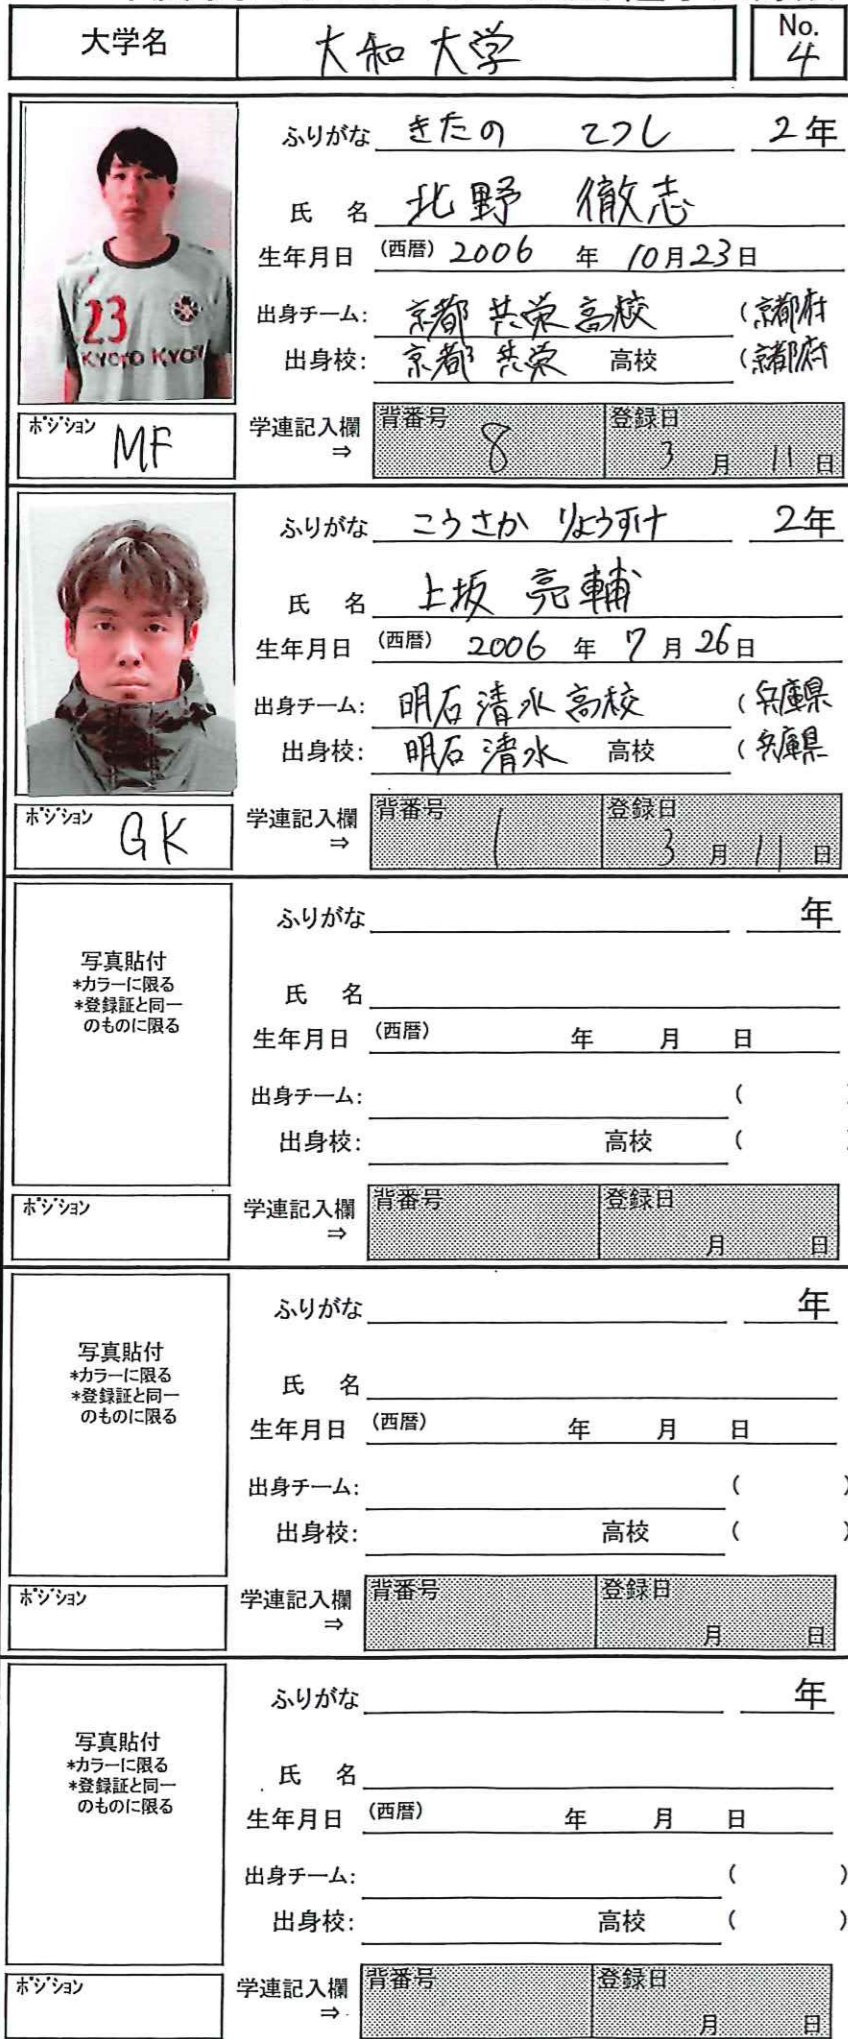 大学名 大和大学 No. 4
ふりがな きたの てつし 2年
23
KYOTO KYOEI
氏 名 北野 徹志
生年月日 (西暦) 2006 年 10月23日
出身チーム: 京都共栄高校 (京都府
出身校: 京都共栄 高校 (京都府
ポジション MF
学連記入欄 ⇒ 背番号 8 登録日 3月11日
ふりがな こうさか りょうすけ 2年
氏 名 上坂 亮輔
生年月日 (西暦) 2006 年 7月26日
出身チーム: 明石清水高校 (兵庫県
出身校: 明石清水 高校 (兵庫県
ポジション GK
学連記入欄 ⇒ 背番号 1 登録日 3月11日
写真貼付
*カラーに限る
*登録証と同一
のものに限る
ふりがな 年
氏 名
生年月日 (西暦) 年 月 日
出身チーム: (
出身校: 高校 (
ポジション
学連記入欄 ⇒ 背番号 登録日 月 日
写真貼付
*カラーに限る
*登録証と同一
のものに限る
ふりがな 年
氏 名
生年月日 (西暦) 年 月 日
出身チーム: ( )
出身校: 高校 ( )
ポジション
学連記入欄 ⇒ 背番号 登録日 月 日
写真貼付
*カラーに限る
*登録証と同一
のものに限る
ふりがな 年
氏 名
生年月日 (西暦) 年 月 日
出身チーム: ( )
出身校: 高校 ( )
ポジション
学連記入欄 ⇒ 背番号 登録日 月 日